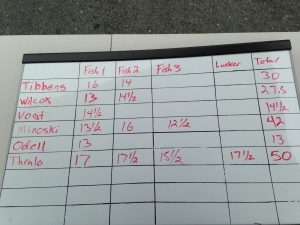 Fish 1 Fish 2 Fish 3 Lunker Total
Tibbens 16 14 30
Wilcox 13 14½ 27.5
Vost 14½ 14½
Minoski 13½ 16 12½ 42
Odell 13 13
Thralo 17 17½ 15½ 17½ 50